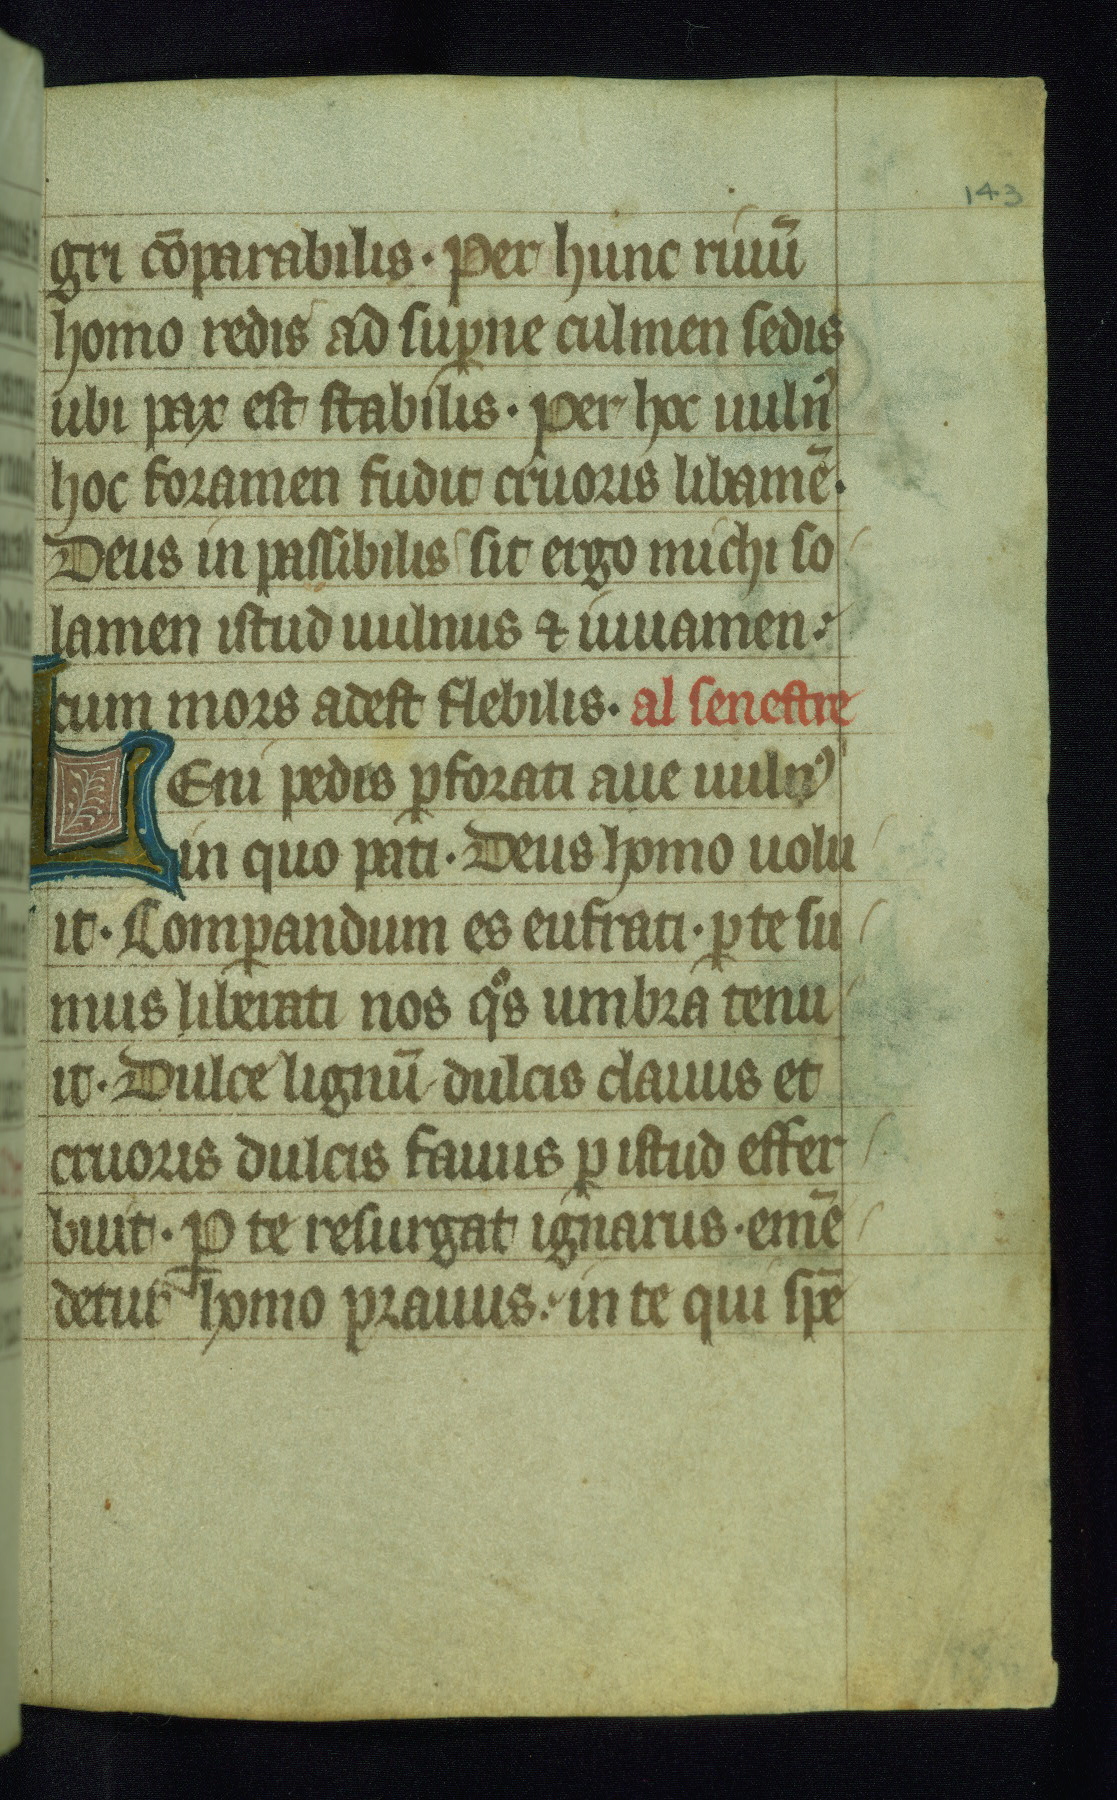 143
gri cōparabilis · Per hunc riuū
homo redis ad suꝑne culmen sedis
ubi pax est stabilis · per hoc uulnꝰ
hoc foramen fudit cruoris libamē ·
Deus in passibilis sit ergo michi so
lamen istud uulnus ⁊ iuuamen ·
cum mors adest flebilis · al senestre
LEui pedis ꝑforati aue uulnꝰ
in quo pati · Deus homo uolu
it · Comꝑandum es eufrati · ꝑ te su
mus liberati nos qͦs umbra tenu
it · Dulce lignū dulcis clauus et
cruoris dulcis fauus ꝑ istud effer
buit · Ꝑ te resurgat ignarus · emē
detur homo prauus · in te qui spē